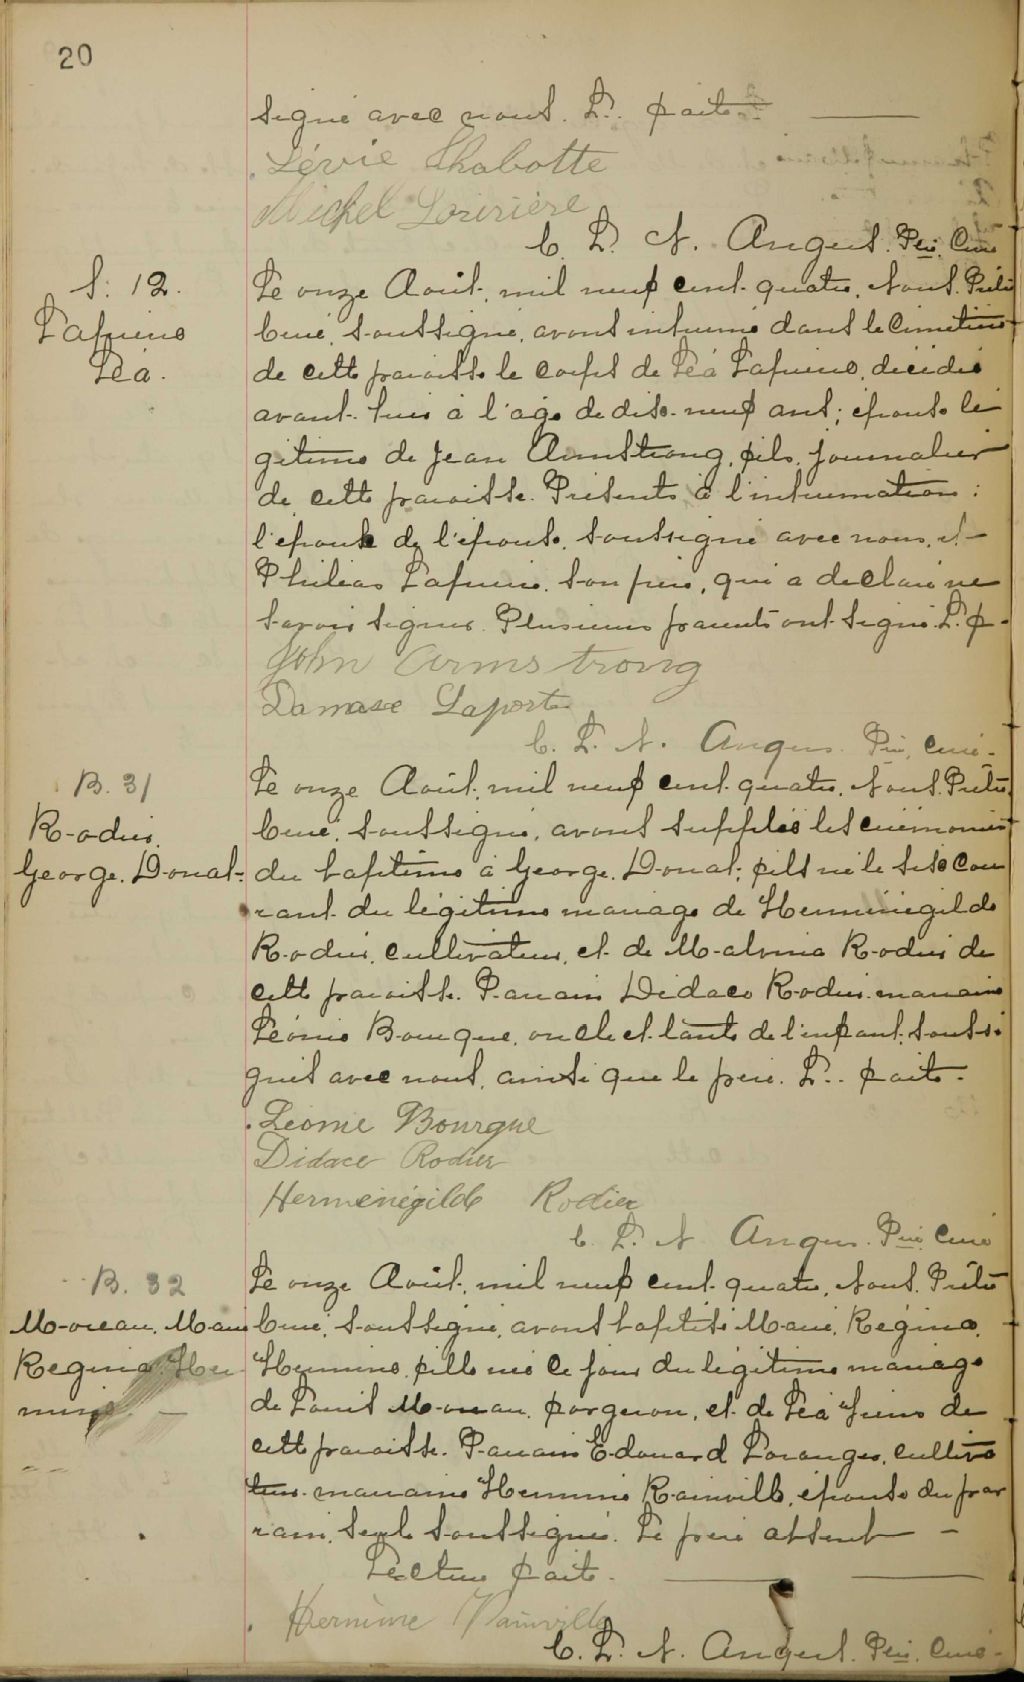 20
signé avec nous. L. faite.
Lévie Chabotte
Michel Larivière
C. L. N. Angers. Ptre. Curé
S. 12.
Lafrenière
Léa.
Le onze Août, mil neuf cent quatre, Nous Prêtre
Curé, soussigné, avons inhumé dans le Cimetière
de cette paroisse le corps de Léa Lafrenière, décédée
avant-hier à l'âge de dix-neuf ans; épouse lé
gitime de Jean Armstrong, fils, journalier
de cette paroisse. Présents à l'inhumation:
l'époux de l'épouse, soussigné avec nous, et
Philias Lafrenière son frère, qui a déclaré ne
savoir signer. Plusieurs parents ont signé. L. f.
John Armstrong
Damase Laporte
C. L. N. Angers. Ptre, curé.
B. 31
Rodier
George. Donat.
Le onze Août, mil neuf cent quatre, Nous Prêtre
Curé, soussigné, avons suppléé les cérémonies
du baptême à George. Donat, fils né le six cou
rant du légitime mariage de Herménégilde
Rodier, cultivateur, et de Malvina Rodier de
cette paroisse. Parrain Didace Rodier marraine
Léonie Bourque, oncle et tante de l'enfant, soussi
gnés avec nous, ainsi que le père. L.. faite.
Léonie Bourque
Didace Rodier
Herménégilde Rodier
C. L. N. Angers. Ptre. Curé
B. 32
Moreau. Marie
Régina. Her
mine.
Le onze Août, mil neuf cent quatre, Nous Prêtre
Curé, soussigné, avons baptisé Marie, Régina,
Hermine, fille née ce jour du légitime mariage
de Louis Moreau, forgeron, et de Léa de
cette paroisse. Parrain Edouard Loranger, cultiva
teur marraine Hermine Rainville, épouse du par
rain, seule soussignée. Le père absent
Lecture faite.
Hermine Rainville
C. L. N. Angers. Ptre. Curé.